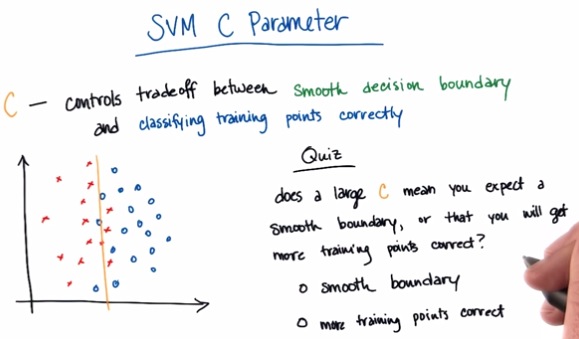 SVM C Parameter
C – controls tradeoff between smooth decision boundary
and classifying training points correctly
Quiz
does a large C mean you expect a
smooth boundary, or that you will get
more training points correct?
o smooth boundary
o more training points correct